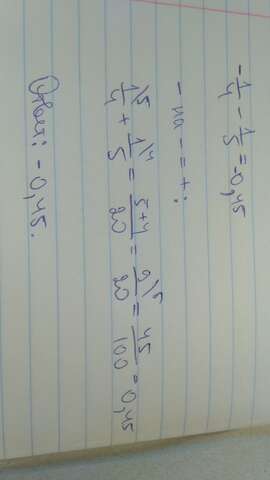 -1/4 - 1/5 = -0,45
- на - = + :
1/4\5 + 1/5\4 = 5+4/20 = 9/20\5 = 45/100 = 0,45
Ответ: -0,45.